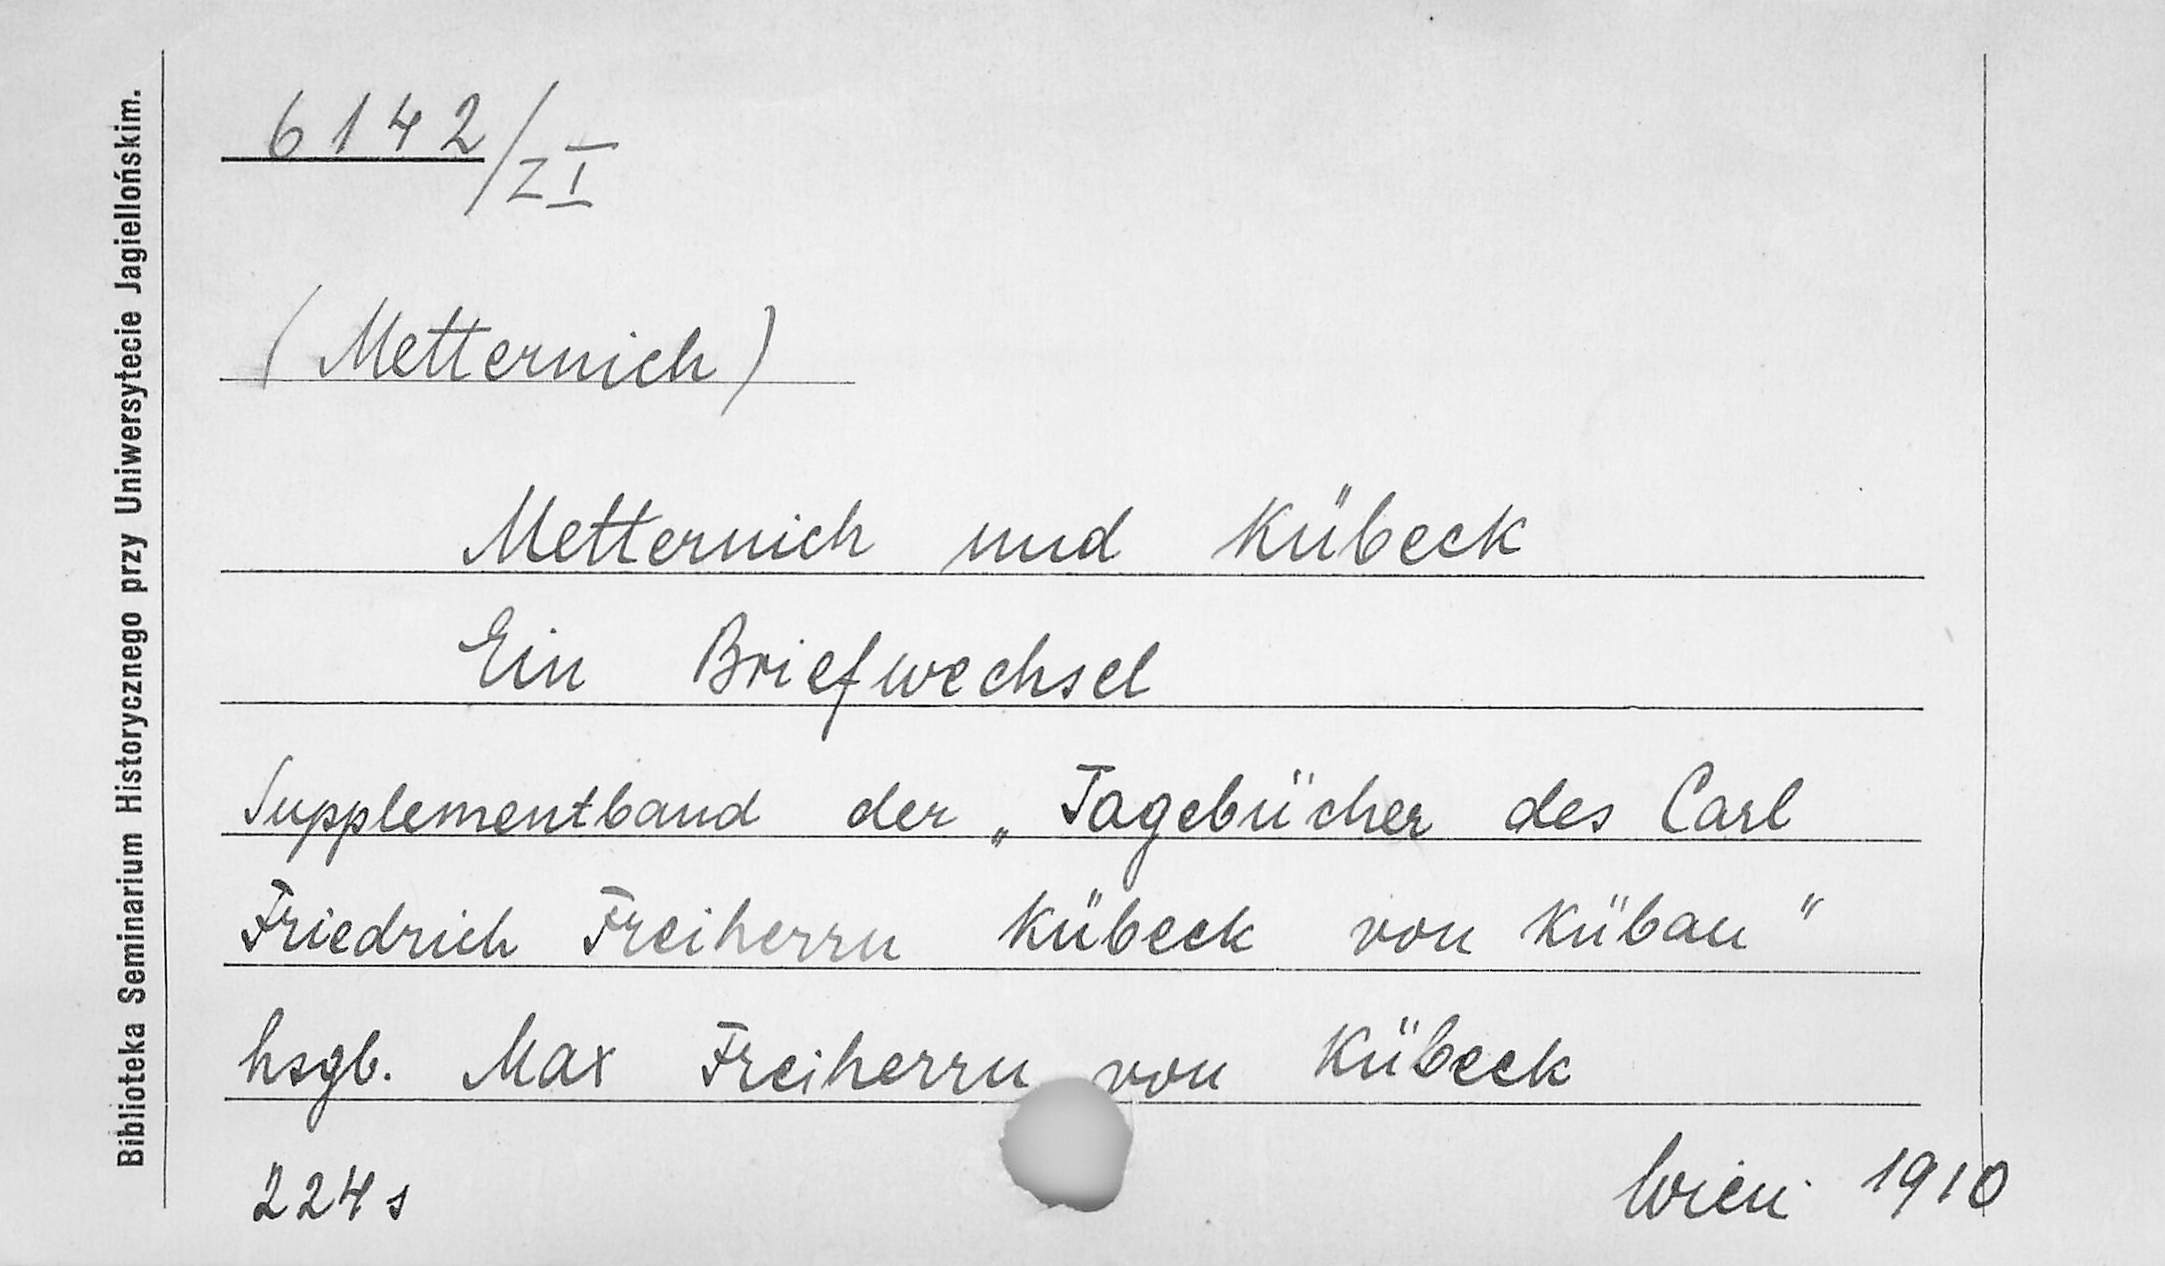 Biblioteka Seminarium Historycznego przy Uniwersytecie Jagiellońskim.
6142/ZI
(Metternich)
Metternich und Kübeck
Ein Briefwechsel
Supplementband der „Tagebücher des Carl
Friedrich Freiherrn Kübeck von Kübau"
hsgb. Max Freiherrn von Kübeck
224 s Wien 1910